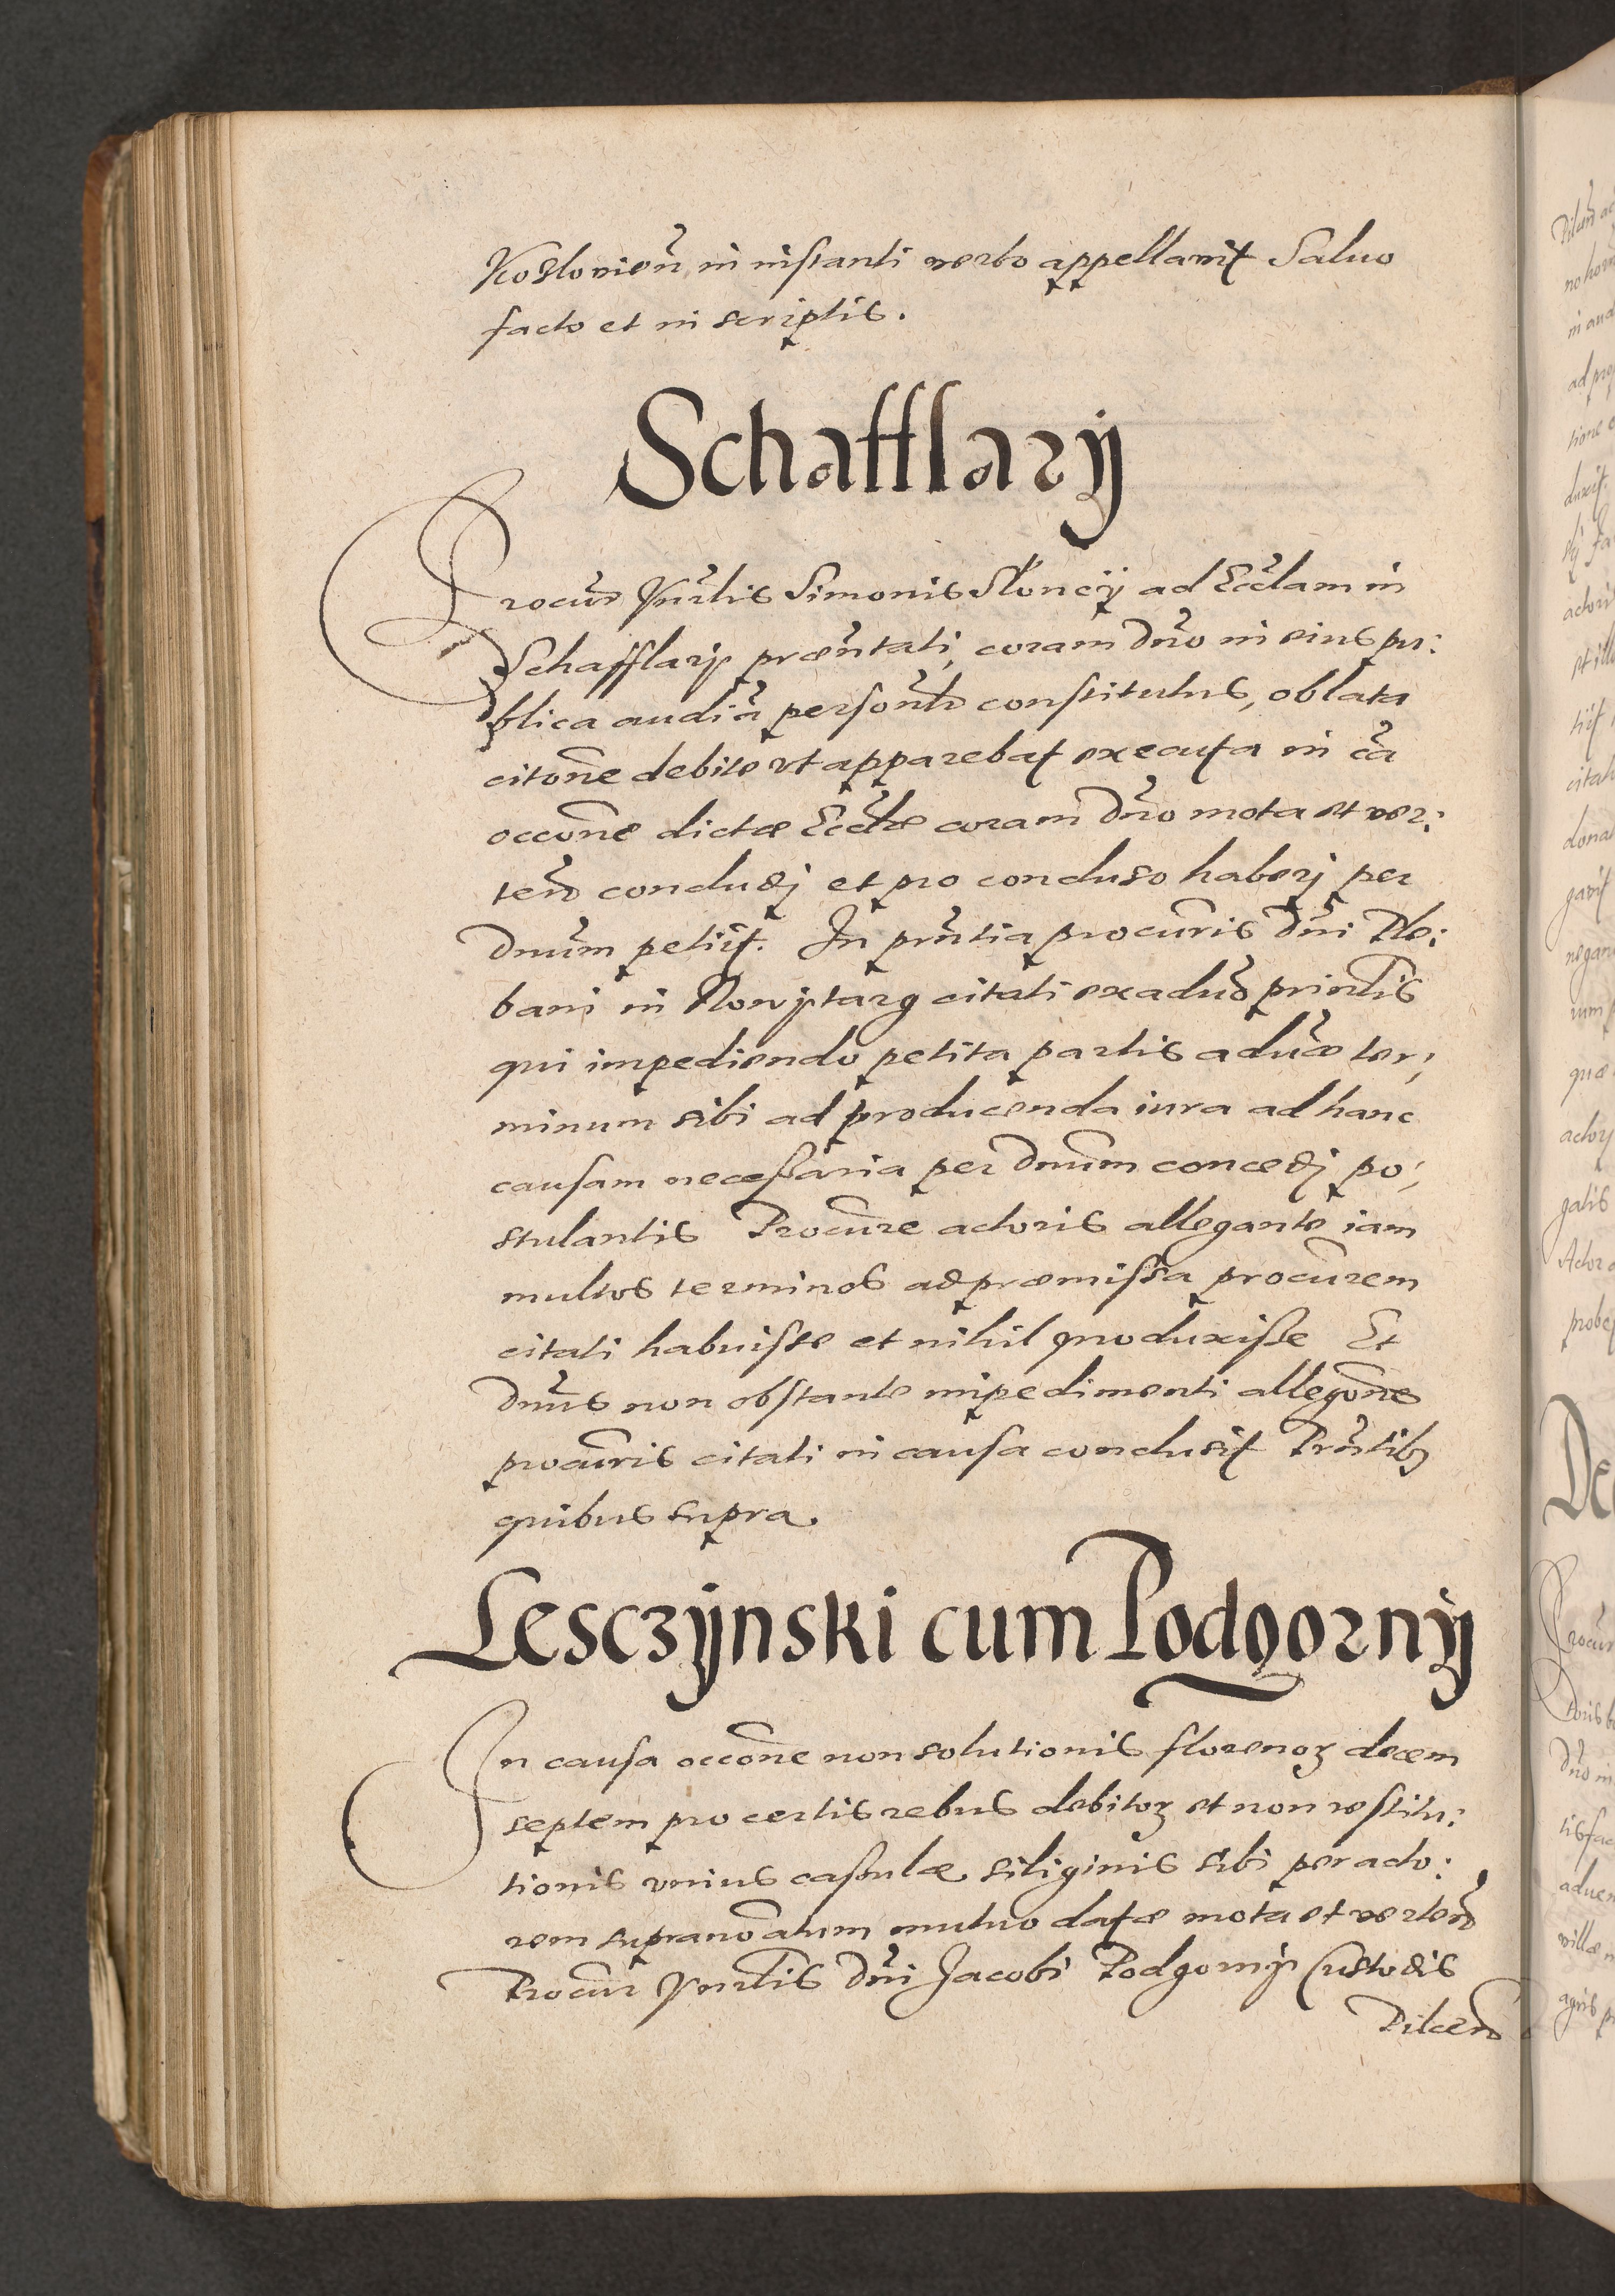 Kozlovien̄, in instanti verbo appellavit Saluo
facto et in scriptis.
Schafflarÿ
Procur̄ Vn̄rlis Simonis Słoncÿ ad Eccl̄am in
Schafflarÿ præn̄tati, coram Dn̄o in eius pu:
blica audiā person̄lr constitutus, oblata
citōne debite vt apparebat executa in cā
occōne dictæ Eccl̄æ coram Dn̄o mota et ver:
ten̄ concludj et pro concluso haberj per
Dnūm petiit. In prn̄tia procur̄is Dn̄i Ple:
bani in Nowÿtarg citati ex aduerso prin̄lis
qui impediendo petita partis aduæ ter,
minum sibi ad producenda iura ad hanc
causam necessaria per Dnūm concedj po,
stulantis Procur̄e actoris allegante iam
multos terminos ad præmissa procur̄em
citati habuisse et nihil produxisse Et
Dnūs non obstante impedimenti allegōne
procur̄is citati in causa conclusit Prn̄tibꝫ
quibus supra.
Lesczÿnski cum Podgornÿ
In causa occōne non solutionis florenoꝝ decem
septem pro certis rebus debitoꝝ et non restitu:
tionis vnius cassulæ siliginis sibi per acto:
rem supranōatum mutuo datæ mota et verten̄
Procur̄ Vn̄rlis Dn̄i Jacobi Podgornÿ Custodis
Pilcen̄